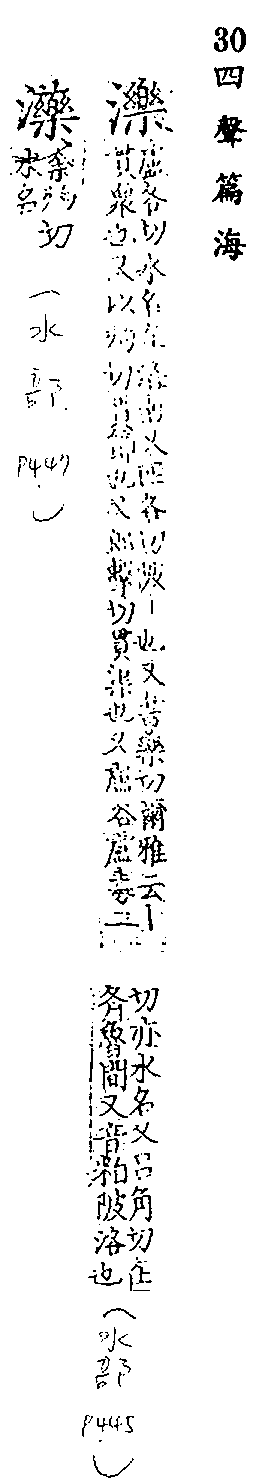 30 四聲篇海
濼
盧各切水名在濟南又匹各切陂丨也又書藥切爾雅云丨
貫衆也又以灼切治病也又郎擊切貫渠也又盧谷盧毒二
切亦水名又呂角切在
齊魯間又音粕陂洛也
（水部 P445）
灼切
水名
（水部 P447）